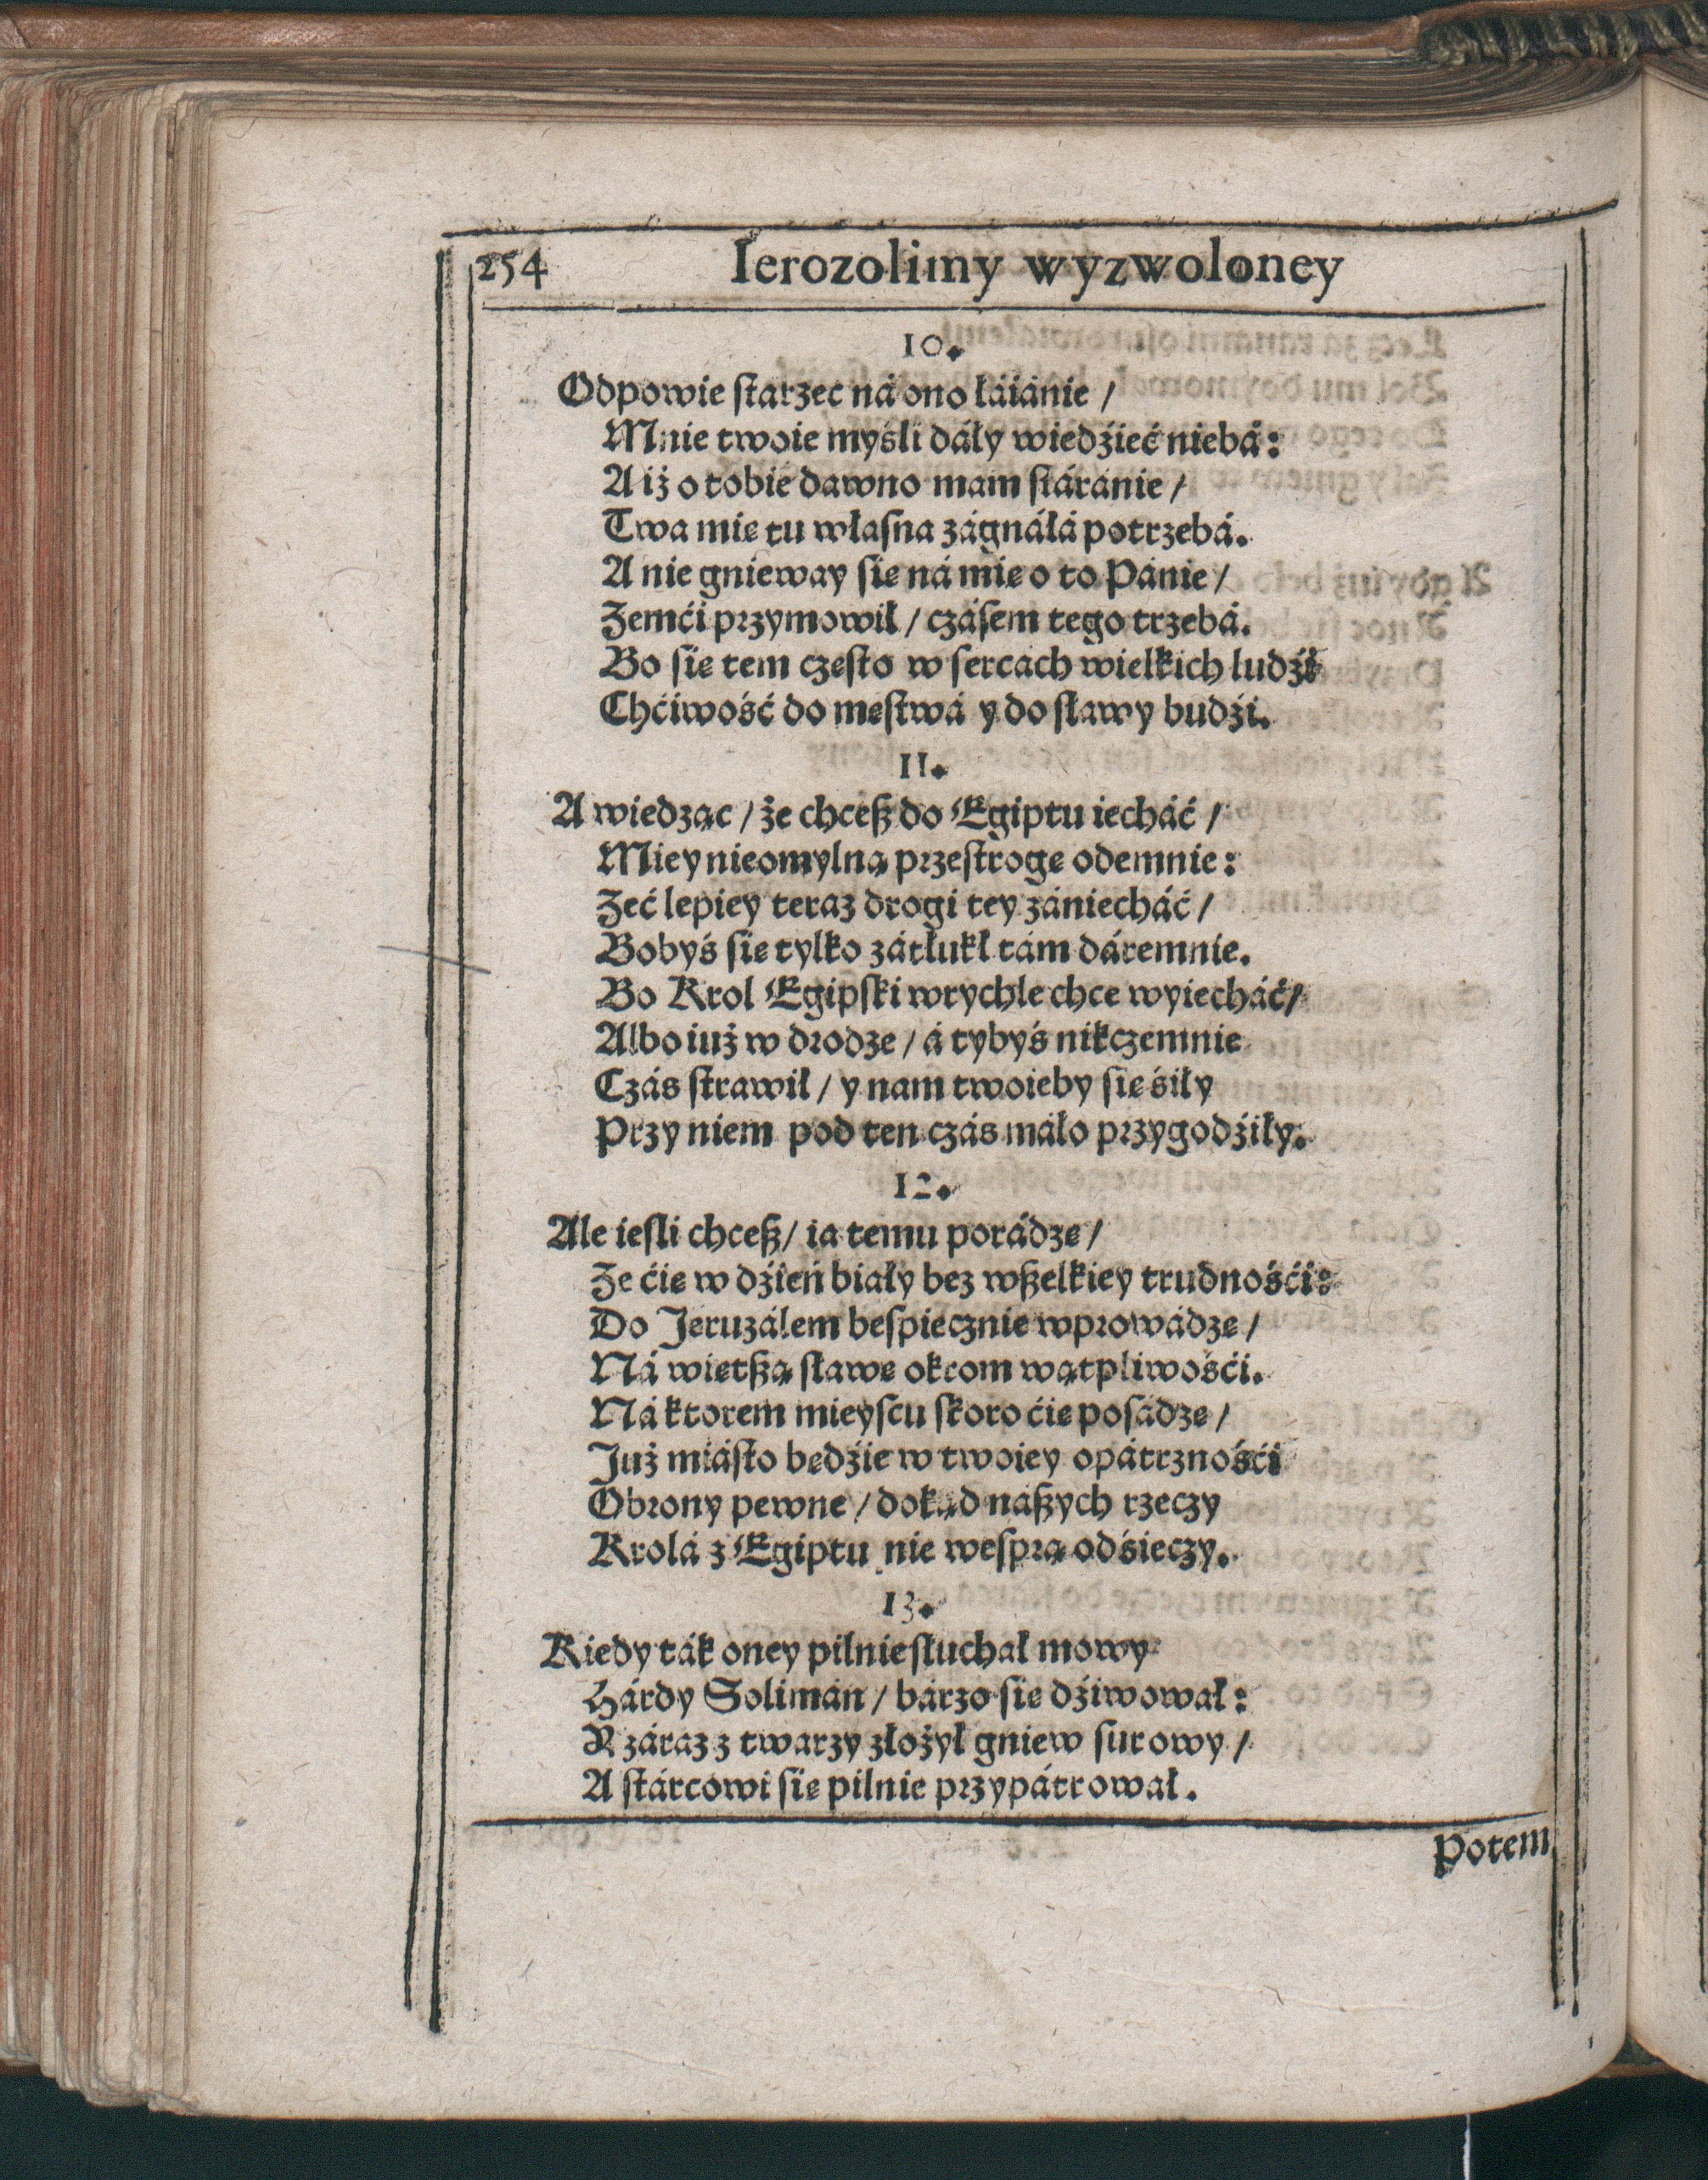 254 Ierozolimy wyzwoloney
10.
Odpowie ſtarzec ná ono łáiánie /
Mnie twoie myśli dáły wiedźieć niebá:
A iż o tobie dawno mam ſtáránie /
Twa mię tu właſna zágnáłá potrzebá.
A nie gnieway ſię ná mię o to Pánie /
Żemći przymowił / czáſem tego trzebá.
Bo ſię tem częſto w ſercach wielkich ludźi
Chćiwość do męſtwá y do ſławy budźi.
11.
A wiedząc / że chceß do Egiptu iecháć /
Miey nieomylną przeſtrogę odemnie:
Żeć lepiey teraz drogi tey zániecháć /
Bobyś ſię tylko zátłukł tám dáremnie.
Bo Krol Egipſki wrychle chce wyiecháć /
Albo iuż w drodze / á tybyś nikczemnie
Czás ſtrawił / y nam twoieby ſię śiły
Przy niem pod ten czás máło przygodźiły.
12.
Ale ieſli chceß / ia temu porádzę /
Że ćię w dźień biały bez wßelkiey trudnośći:
Do Jeruzálem beſpiecznie wprowádzę /
Ná więtßą ſławę okrom wątpliwośći.
Ná ktorem mieyſcu ſkoro ćię poſádzę /
Już miáſto będźie w twoiey opátrznośći
Obrony pewne / dokąd náßych rzeczy
Krolá z Egiptu nie weſprą odśieczy.
13.
Kiedy ták oney pilnie ſłuchał mowy
Hárdy Solimán / bárzo ſię dźiwował:
R záraz z twarzy złożył gniew ſurowy /
A ſtárcowi ſię pilnie przypátrował.
Potem